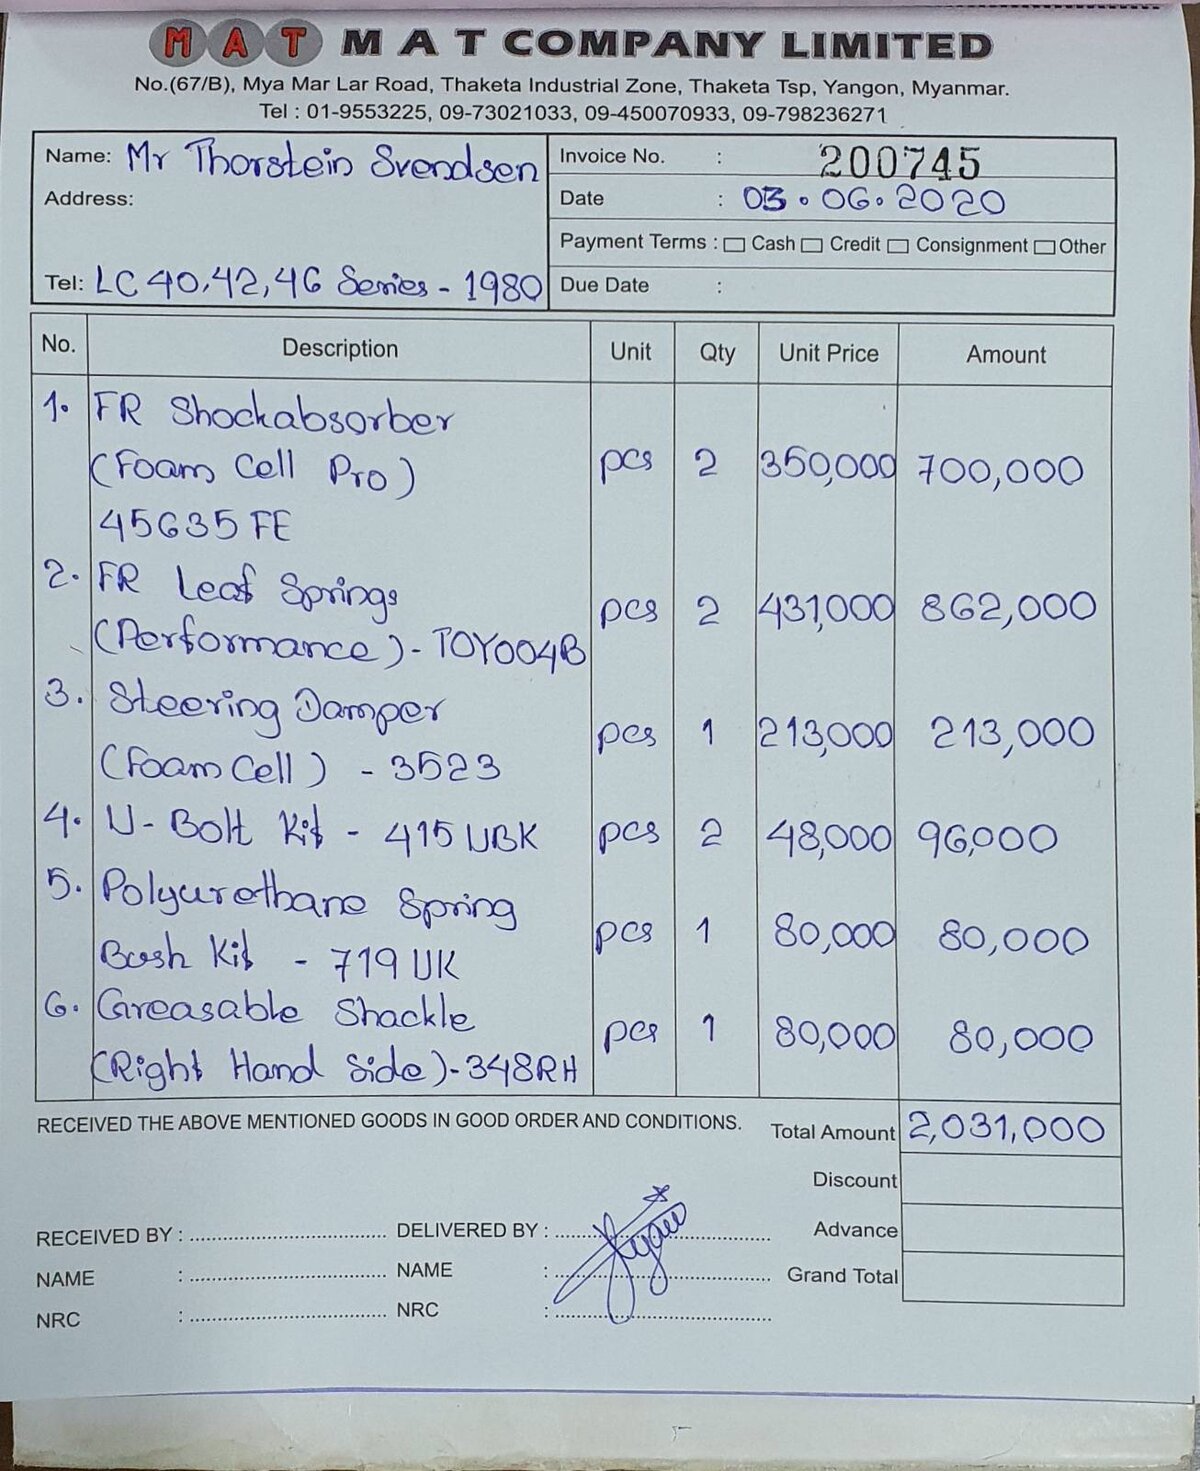 MAT M A T COMPANY LIMITED
No.(67/B), Mya Mar Lar Road, Thaketa Industrial Zone, Thaketa Tsp, Yangon, Myanmar.
Tel : 01-9553225, 09-73021033, 09-450070933, 09-798236271
Name: Mr Thorstein Svendsen
Address:
Tel: LC 40,42,46 Series - 1980
Invoice No. : 200745
Date : 03.06.2020
Payment Terms : Cash Credit Consignment Other
Due Date :
No. Description Unit Qty Unit Price Amount
1. FR Shockabsorber
(Foam Cell Pro) pcs 2 350,000 700,000
45635 FE
2. FR Leaf Springs pcs 2 431,000 862,000
(Performance) - TOY004B
3. Steering Damper pcs 1 213,000 213,000
(Foam Cell) - 3523
4. U-Bolt Kit - 415 UBK pcs 2 48,000 96,000
5. Polyurethane Spring pcs 1 80,000 80,000
Bush Kit - 719 UK
6. Greasable Shackle pcs 1 80,000 80,000
(Right Hand Side) - 348RH
RECEIVED THE ABOVE MENTIONED GOODS IN GOOD ORDER AND CONDITIONS.
Total Amount 2,031,000
Discount
Advance
Grand Total
RECEIVED BY : DELIVERED BY :
NAME : NAME :
NRC : NRC :